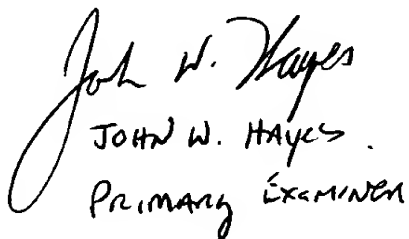 John W. Hayes
JOHN W. HAYES.
PRIMARY EXAMINER